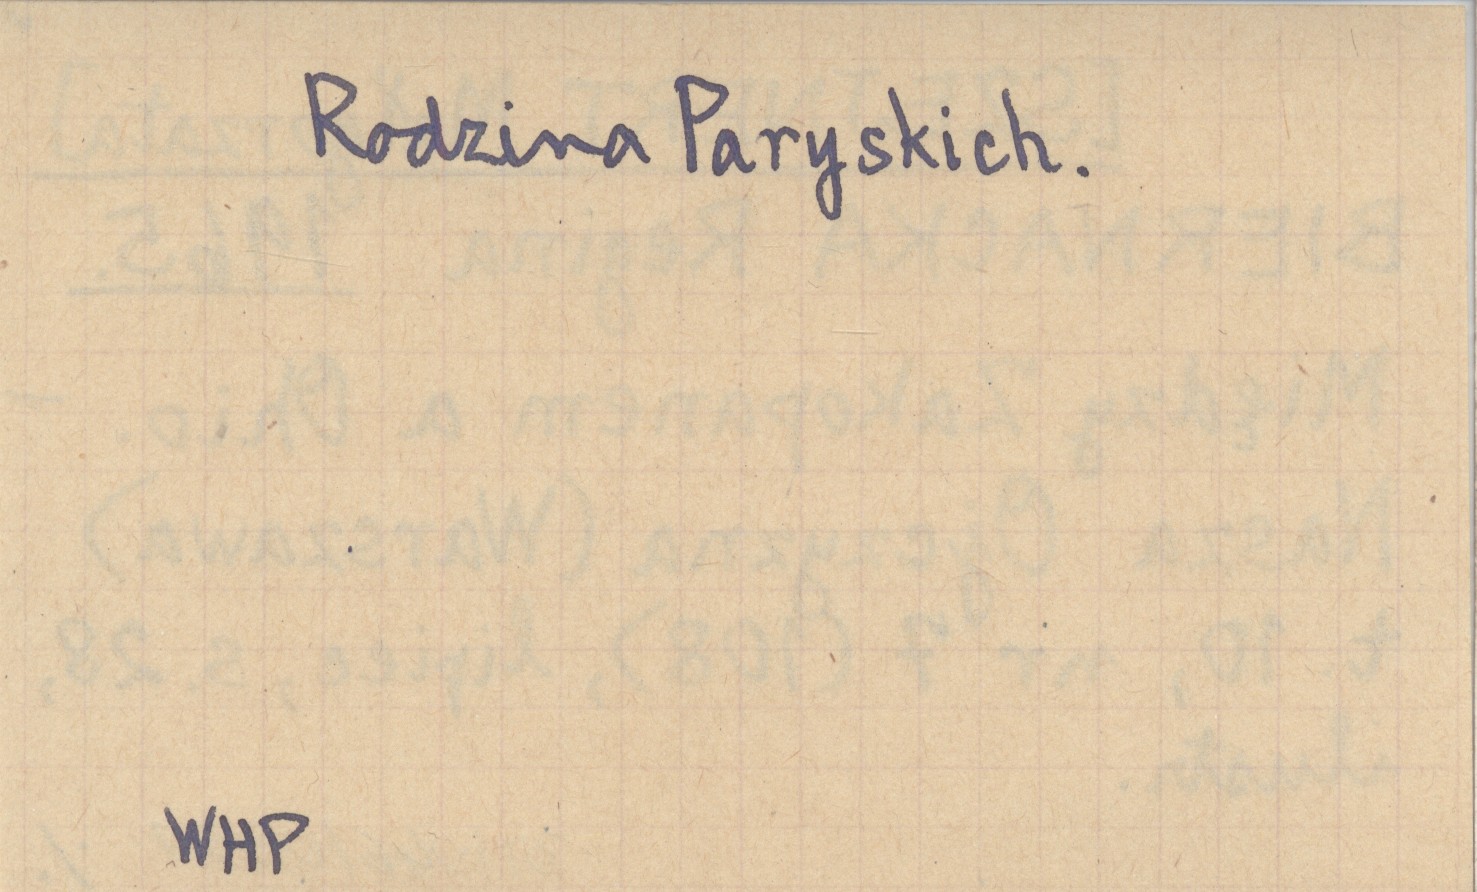 Rodzina Paryskich.
WHP